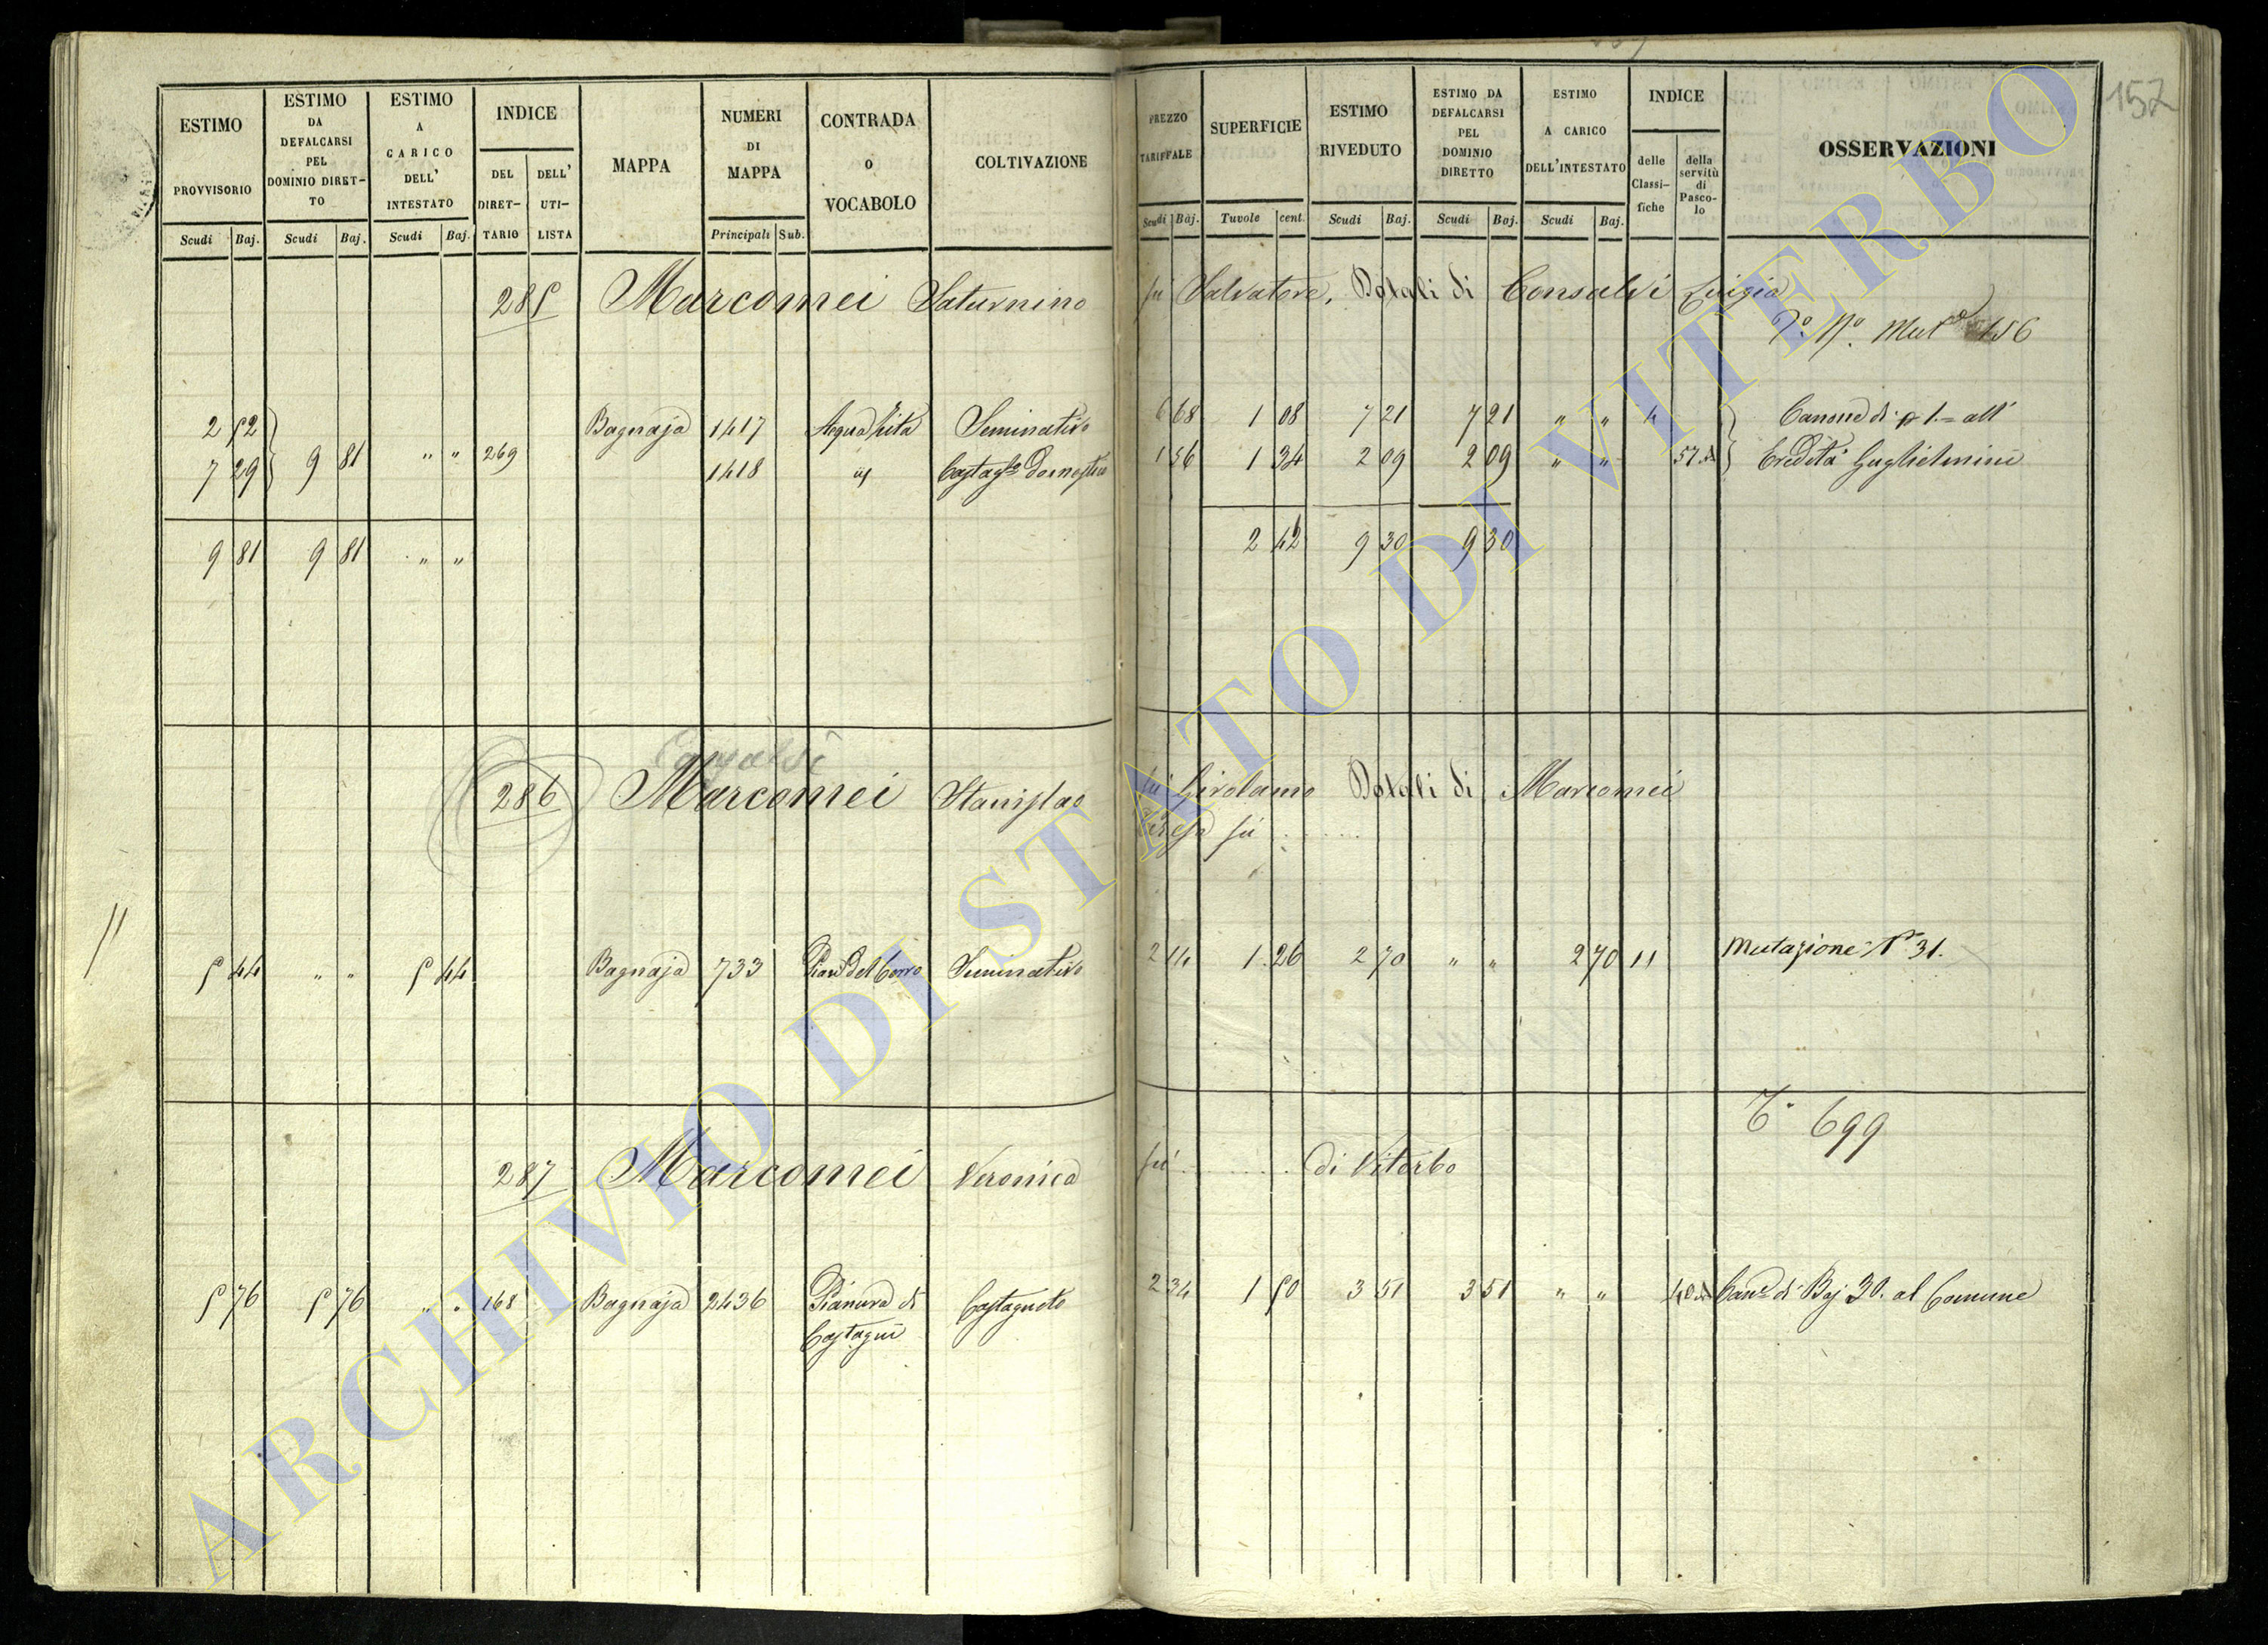 157
ESTIMO PROVVISORIO
Scudi Baj.
ESTIMO DA DEFALCARSI PEL DOMINIO DIRET- TO
Scudi Baj.
ESTIMO A CARICO DELL' INTESTATO
Scudi Baj.
INDICE
DEL DIRET- TARIO
DELL' UTI- LISTA
MAPPA
NUMERI DI MAPPA
Principali Sub.
CONTRADA O VOCABOLO
COLTIVAZIONE
PREZZO TARIFFALE
Scudi Baj.
SUPERFICIE
Tavole cent.
ESTIMO RIVEDUTO
Scudi Baj.
ESTIMO DA DEFALCARSI PEL DOMINIO DIRETTO
Scudi Baj.
ESTIMO A CARICO DELL'INTESTATO
Scudi Baj.
INDICE
delle Classi- fiche
della servitù di Pasco- lo
OSSERVAZIONI
285 Marcomei Saturnino fu Salvatore, Dotali di Consalvi Luigia
156
2 52 Bagnaja 1417 Acqua Seminativo 6 68 1 08 7 21 7 21 " " 4 Canone di 1.= all'
7 29 9 81 " " 269 1418 id Castag.to Domestico 1 56 1 34 2 09 2 09 " " 57 Eredità Guglielmini
9 81 9 81 " " 2 42 9 30 9 30
Consalvi
286 Marcomei Stanislao fu Girolamo Dotali di Marcomei
Teresa fu ......
5 44 " " 5 44 Bagnaja 733 Seminativo 2 14 1 26 2 70 " " 2 70 11 Mutazione N° 31.
T. 699
287 Marcomei Veronica fu ........ di Viterbo
5 76 5 76 " " 168 Bagnaja 2436 Pianura di Castagneto 2 34 1 50 3 51 3 51 " " 40 Can.e di Baj 30. al Comune
Castagni
ARCHIVIO DI STATO DI VITERBO